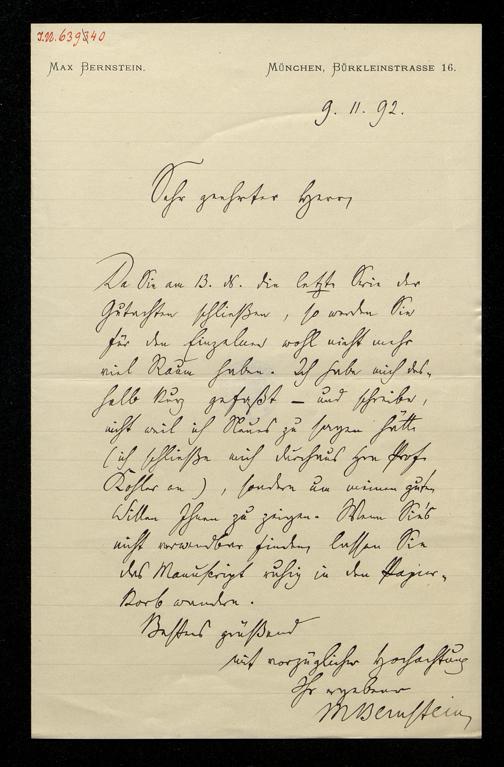 I.N. 639340
MAX BERNSTEIN.
MÜNCHEN, BÜRKLEINSTRASSE 16.
9. 11. 92.
Sehr geehrter Herr,
Da Sie am 13. ds. die letzte Serie der
Gutachten schließen, so werden Sie
für den Einzelnen wohl nicht mehr
viel Raum haben. Ich habe mich des-
halb kurz gefaßt – und schreibe,
nicht weil ich Neues zu sagen hätte
(ich schließe mich durchaus Hrn Prof.
Kohler an), sondern um meinen guten
Willen Ihnen zu zeigen. Wenn Sie's
nicht verwendbar finden, lassen Sie
das Manuscript ruhig in den Papier-
korb wandern.
Bestens grüßend
mit vorzüglicher Hochachtung
Ihr ergebener
MBernstein